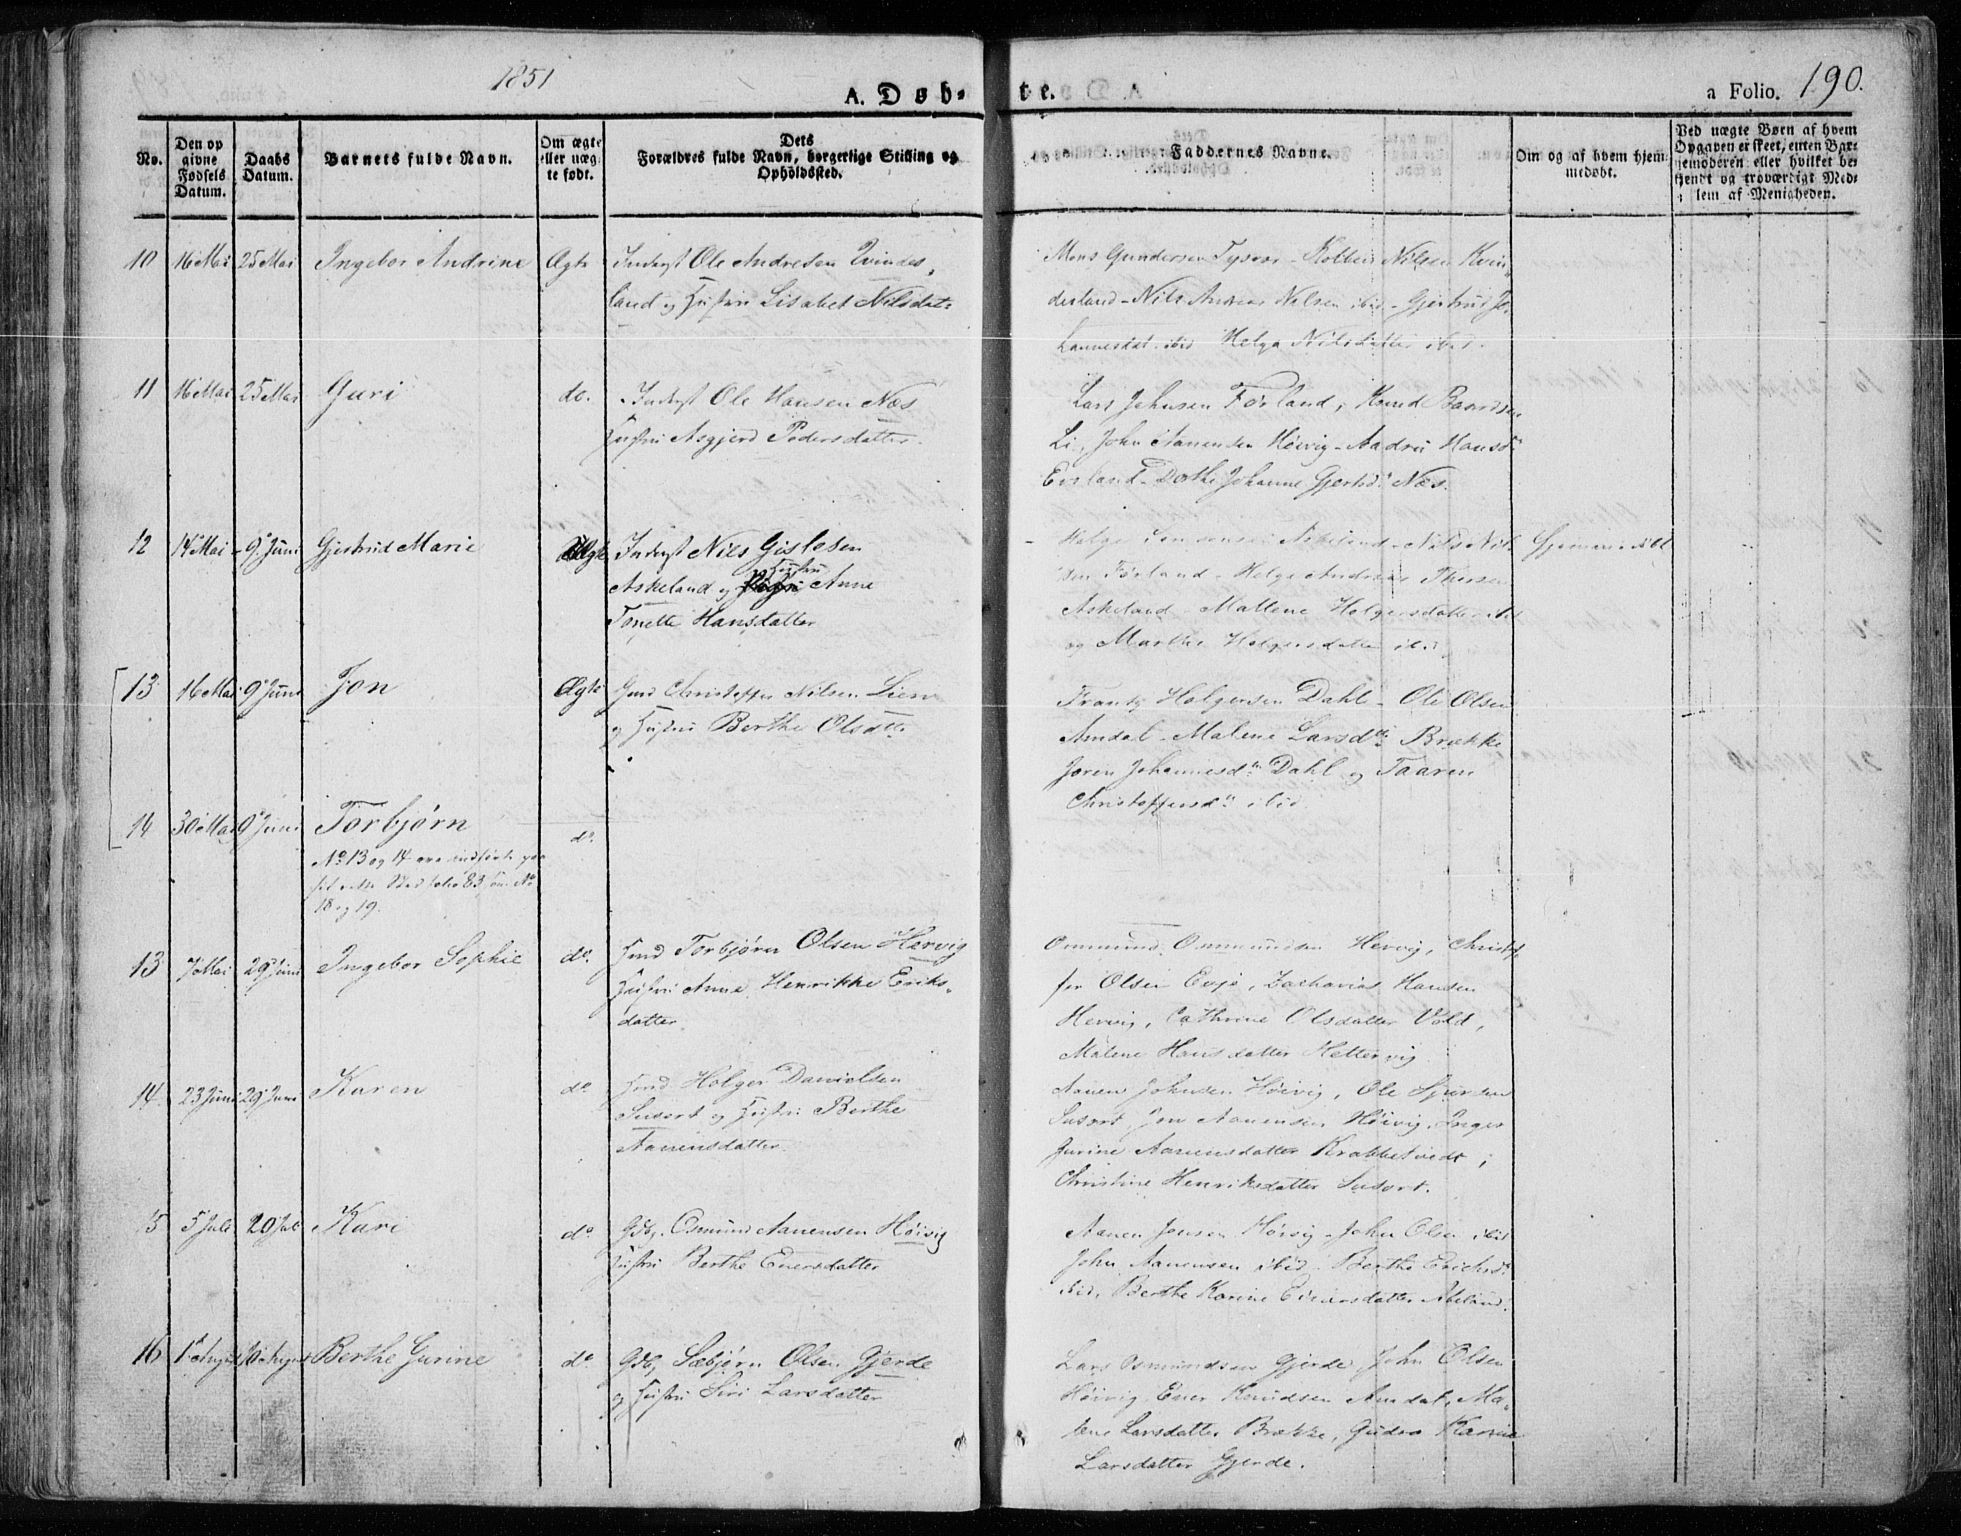 1851
A. Døb-
te.
a Folio. 190.
No.
Den op
givne
Fødsels
Datum.
Daabs
Datum.
Barnets fulde Navn.
Om ægte
eller uæg
te født.
Dets
Forældres fulde Navn, borgerlige Stilling og
Opholdssted.
Faddernes Navne.
Om og af hvem hjem
medøbt.
Ved uægte Børn af hvem
Opgaven er skeet, enten Bar-
nemoderen eller hvilket be
kjendt og troværdigt Med-
lem af Menigheden.
10 16 Mai 25 Mai Ingebor Andrine Ægte Inderst Ole Andresen Qvindes-
land og Hustru Lisabet Nilsdat:
Mons Gundersen Tysvær - Nilsen Kvin
desland - Nils Andreas Nilsen ibid - Gjertrud Jo-
hannesdat. ibid Helga Nilsdatter ibid.
11 16 Mai 25 Mai Guri do. Inderst Ole Hansen Næs
Hustru Asgjerd Pedersdatter.
Lars Johnsen Førland, Knud Baardsen
Li, John Aanensen Høivig - Hansd.
Dorthe Johanne Gjertsd. Næs.
12 14 Mai 9 Juni Gjertrud Marie Ægte Inderst Nils Gislesen
Askeland og Hustru Anne
Tonette Hansdatter
Helge Nils Nil-
sen Førland - Helge Andreas
Askeland - Mallene Holgersdatter ibid
og Marthe Holgersdatter ibid
13 16 Mai 9 Juni Jon Ægte Gmd Christoffer Nilsen Lien
og Hustru Berthe Olsdtr
Frantz Holgersen Dahl - Ole Olsen
Amdal - Malene Larsdtr Brække
Joren Johannesdtr Dahl og Taaren
Christoffersdtr ibid.
14 30 Mai 9 Juni Torbjørn do.
No 13 og 14 ere indførte paa
sit rette Sted folio 83, som No
18 og 19.
13 7 Mai 29 Juni Ingebor Sophie do. Hmd Torbjørn Olsen Hervig
Hustru Anne Henrikke Eriks-
datter.
Ommund Ommundsen Hervig, Christof
fer Olsen Evje, Zacharias Hansen
Hervig, Cathrine Olsdatter Vold,
Malene Hansdatter Hettervig
14. 23 Juni 29 Juni Karen do Hmd Holger Danielsen
Susort og Hustru Berthe
Aanensdatter.
Aanen Johnsen Høivig, Ole Sjursen
Susort, Jon Aanensen Høivig, Inger
Gurine Aanensdatter Krabbetvedt,
Christine Henriksdatter Susort.
15 5 Juli 20 Juli Kari do Gdbr. Osmund Aanensen Høivig
Hustru Berthe Enersdatter
Aanen Jonsen Høivig - John Olsen ibid
John Aanensen ibid. Berthe Erichsd.
ibid, Berthe Karine Einarsdatter
16 1 August 10 August Berthe Gurine do Gdbr Sæbjørn Olsen Gjerde
og Hustru Siri Larsdatter
Lars Osmundsen Gjerde, John Olsen
Høivig, Ener Knudsen Amdal, Ma-
lene Larsdatter Brække, Karine
Larsdatter Gjerde.